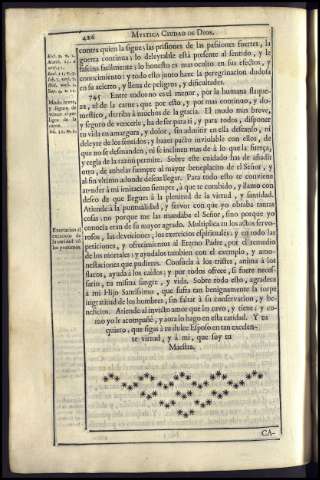 426
MYSTICA CIUDAD DE DIOS.
contra quien la sigue; las prisiones de las pasiones fuertes, la
guerra continua; lo deleytable está presente al sentido, y le
fascina facilmente; lo honesto es mas oculto en sus efectos, y
conocimiento: y todo esto junto haze la peregrinacion dudosa
en su acierto, y llena de peligros, y dificultades.
745 Entre todos no es el menor, por la humana flaque-
za, el de la carne; que por esto, y por mas continuo, y do-
mestico, derriba à muchos de la gracia. El modo mas breve,
y seguro de vencerle, ha de ser para ti, y para todos, disponer
tu vida en amargura, y dolor, sin admitir en ella descanso, ni
deleyte de los sentidos; y hazer pacto inviolable con ellos, de
que no se desmanden, ni se inclinen mas de à lo que la fuerça,
y regla de la razon permite. Sobre este cuidado has de añadir
otro, de anhelar siempre al mayor beneplacito de el Señor, y
al fin vltimo adonde deseas llegar. Para todo esto te conviene
atender à mi imitacion siempre, à que te combido, y llamo con
deseo de que llegues à la plenitud de la virtud, y santidad.
Atiende à la puntualidad, y fervor con que yo obraba tantas
cosas; no porque me las mandaba el Señor, sino porque yo
conocia eran de su mayor agrado. Multiplica tu los actos fervo-
rosos, las devociones, los exercicios espirituales; y en todo las
peticiones, y ofrecimientos al Eterno Padre, por el remedio
de los mortales; y ayudalos tambien con el exemplo, y amo-
nestaciones que pudieres. Consuela à los tristes, anima à los
flacos, ayuda à los caidos; y por todos ofrece, si fuere neces-
sario, tu misma sangre, y vida. Sobre todo esto, agradece
à mi Hijo Santissimo, que sufra tan benignamente la torpe
ingratitud de los hombres, sin faltar à su conservacion, y be-
neficios. Atiende al invicto amor que los tuvo, y tiene; y co-
mo yo le acompañé, y aora lo hago en esta caridad. Y tu
quiero, que sigas à tu dulce Esposo en tan excelen-
te virtud, y à mi, que soy tu
Maestra.
CA-